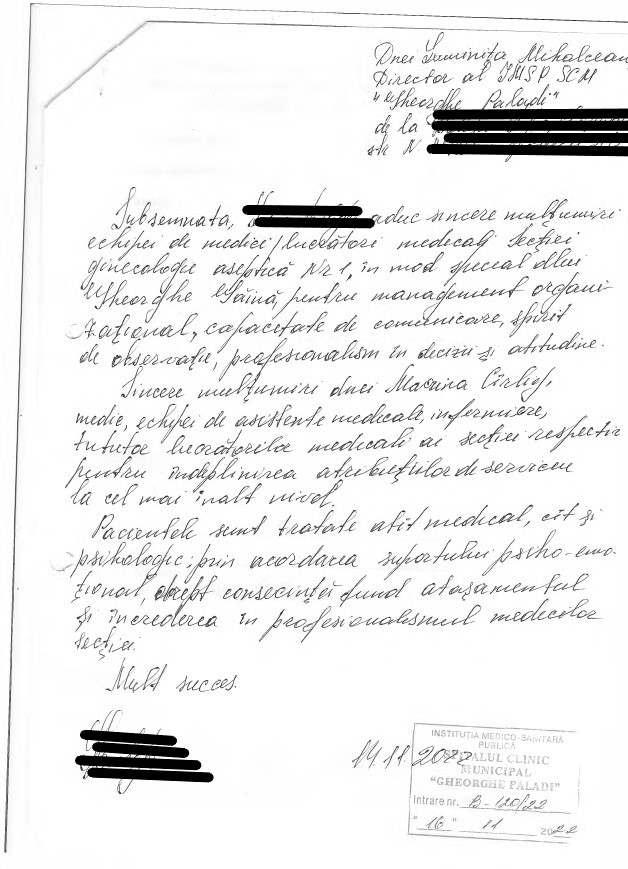 Dnei Luminița Mihalcean
Director al IMSP SCM
"Gheorghe Paladi"
de la
str N.
Subsemnata, aduc sincere mulțumiri
echipei de medici/lucrători medicali Secției
ginecologie aseptică Nr 1, în mod special dlui
Gheorghe Găină, pentru management organi-
zațional, capacetate de comunicare, spirit
de observație, profesionalism în decizii și atitudine.
Sincere mulțumiri dnei Marina Cîrlig,
medic, echipei de asistente medicale, infermiere,
tuturor lucrătorilor medicali ai secției respective
pentru îndiplinirea atribuțiilor de serviciu
la cel mai înalt nivel.
Pacientele sunt tratate atît medical, cît și
psihologic; prin acordarea suportului psiho-emo-
țional, drept consecință fiind atașamentul
și încrederea în profesionalismul medicilor
secției.
Mult succes.
14.11.2022
INSTITUȚIA MEDICO-SANITARĂ
PUBLICĂ
SPITALUL CLINIC
MUNICIPAL
"GHEORGHE PALADI"
Intrare nr. B-120/22
"16" 11 2022